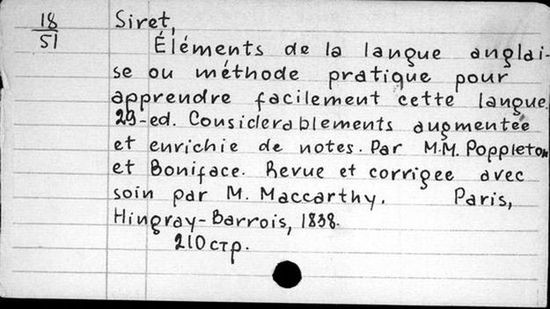 18
51
Siret,
Éléments de la langue anglai-
se ou méthode pratique pour
apprendre facilement cette langue,
29-ed. Considerablements augmentée
et enrichie de notes. Par M.M. Poppleton
et Boniface. Revue et corrigee avec
soin par M. Maccarthy. Paris,
Hingray-Barrois, 1838.
210 стр.